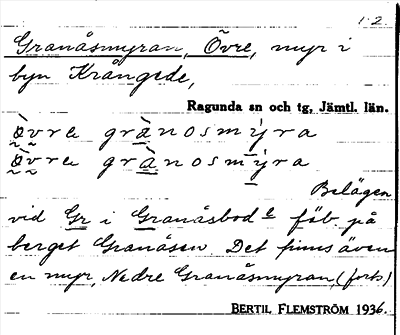 1-2.
Granåsmyran, Övre, myr i
byn Krångede,
Ragunda sn och tg, Jämtl. län.
òvra grànosmỳra
òvra grànosmỳra
Belägen
vid Gr i Granåsbod e fäb. på
berget Granåsen. Det finns även
en myr, Nedre Granåsmyran, (forts)
BERTIL FLEMSTRÖM 1936.